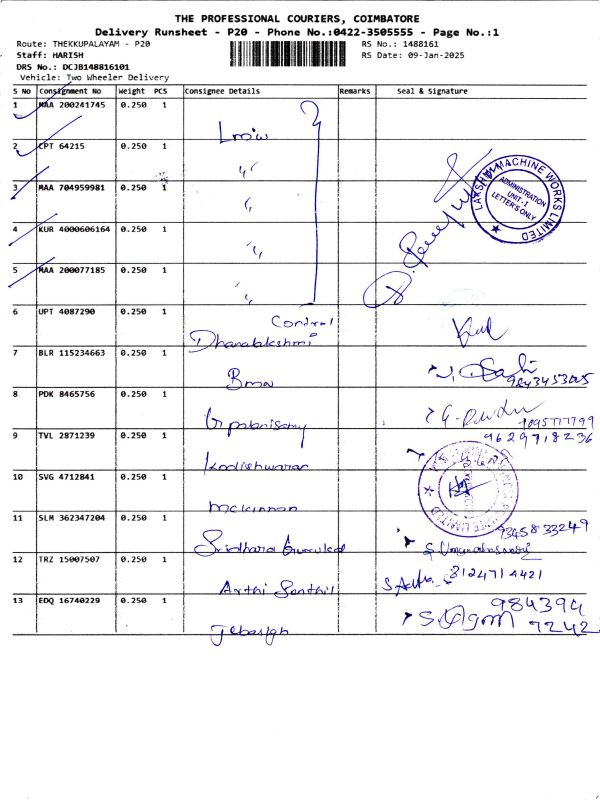 THE PROFESSIONAL COURIERS, COIMBATORE
Delivery Runsheet - P20 - Phone No.:0422-3505555 - Page No.:1
Route: THEKKUPALAYAM - P20
RS No.: 1488161
Staff: HARISH
RS Date: 09-Jan-2025
DRS No.: DCJB148816101
Vehicle: Two Wheeler Delivery
S No Consignment No Weight PCS Consignee Details Remarks Seal & Signature
1 MAA 200241745 0.250 1
2 CPT 64215 0.250 1
3 MAA 704959981 0.250 1
4 KUR 4000606164 0.250 1
5 MAA 200077185 0.250 1
LAKSHMI MACHINE WORKS LIMITED
ADMINISTRATION
UNIT-I
LETTERS ONLY
6 UPT 4087290 0.250 1
Control
Dhanalakshmi
7 BLR 115234663 0.250 1
9843453005
8 PDK 8465756 0.250 1
9 TVL 2871239 0.250 1
9629718236
Kodishwaran
10 SVG 4712841 0.250 1
Mckinnan
11 SLM 362347204 0.250 1
9345833249
Sridhara
12 TRZ 15007507 0.250 1
8124714421
Arthi Senthil
13 EDQ 16740229 0.250 1
984394
7242